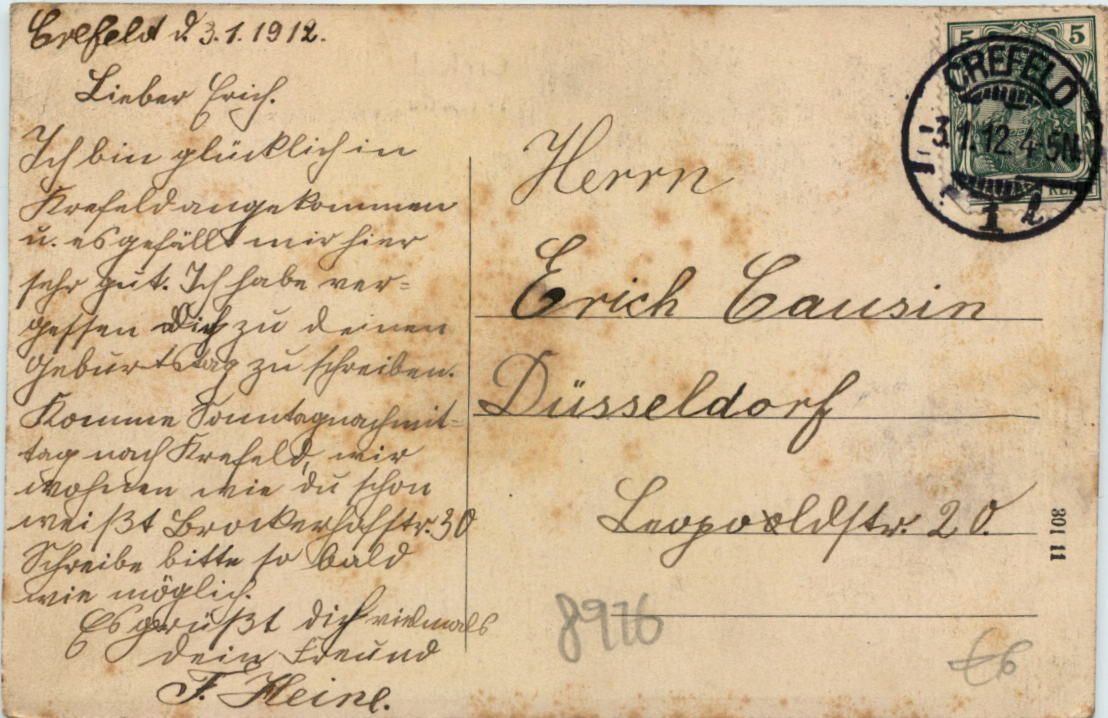 Crefeld d. 3.1.1912.
Lieber Erich.
Ich bin glücklich in
Krefeld angekommen
u. es gefällt mir hier
sehr gut. Ich habe ver=
gessen Dich zu deinen
Geburtstag zu schreiben.
Komme Sonntagnachmit=
tag nach Krefeld, wir
wohnen wie du schon
weißt Brockerhofstr. 30
Schreibe bitte so bald
wie möglich.
Es grüßt dich vielmals
dein Freund
F. Heine.
Herrn
Erich Causin
Düsseldorf
Leopoldstr. 20.
5 5
CREFELD
3.1.12.4-5N.
1 l
301 11
8976